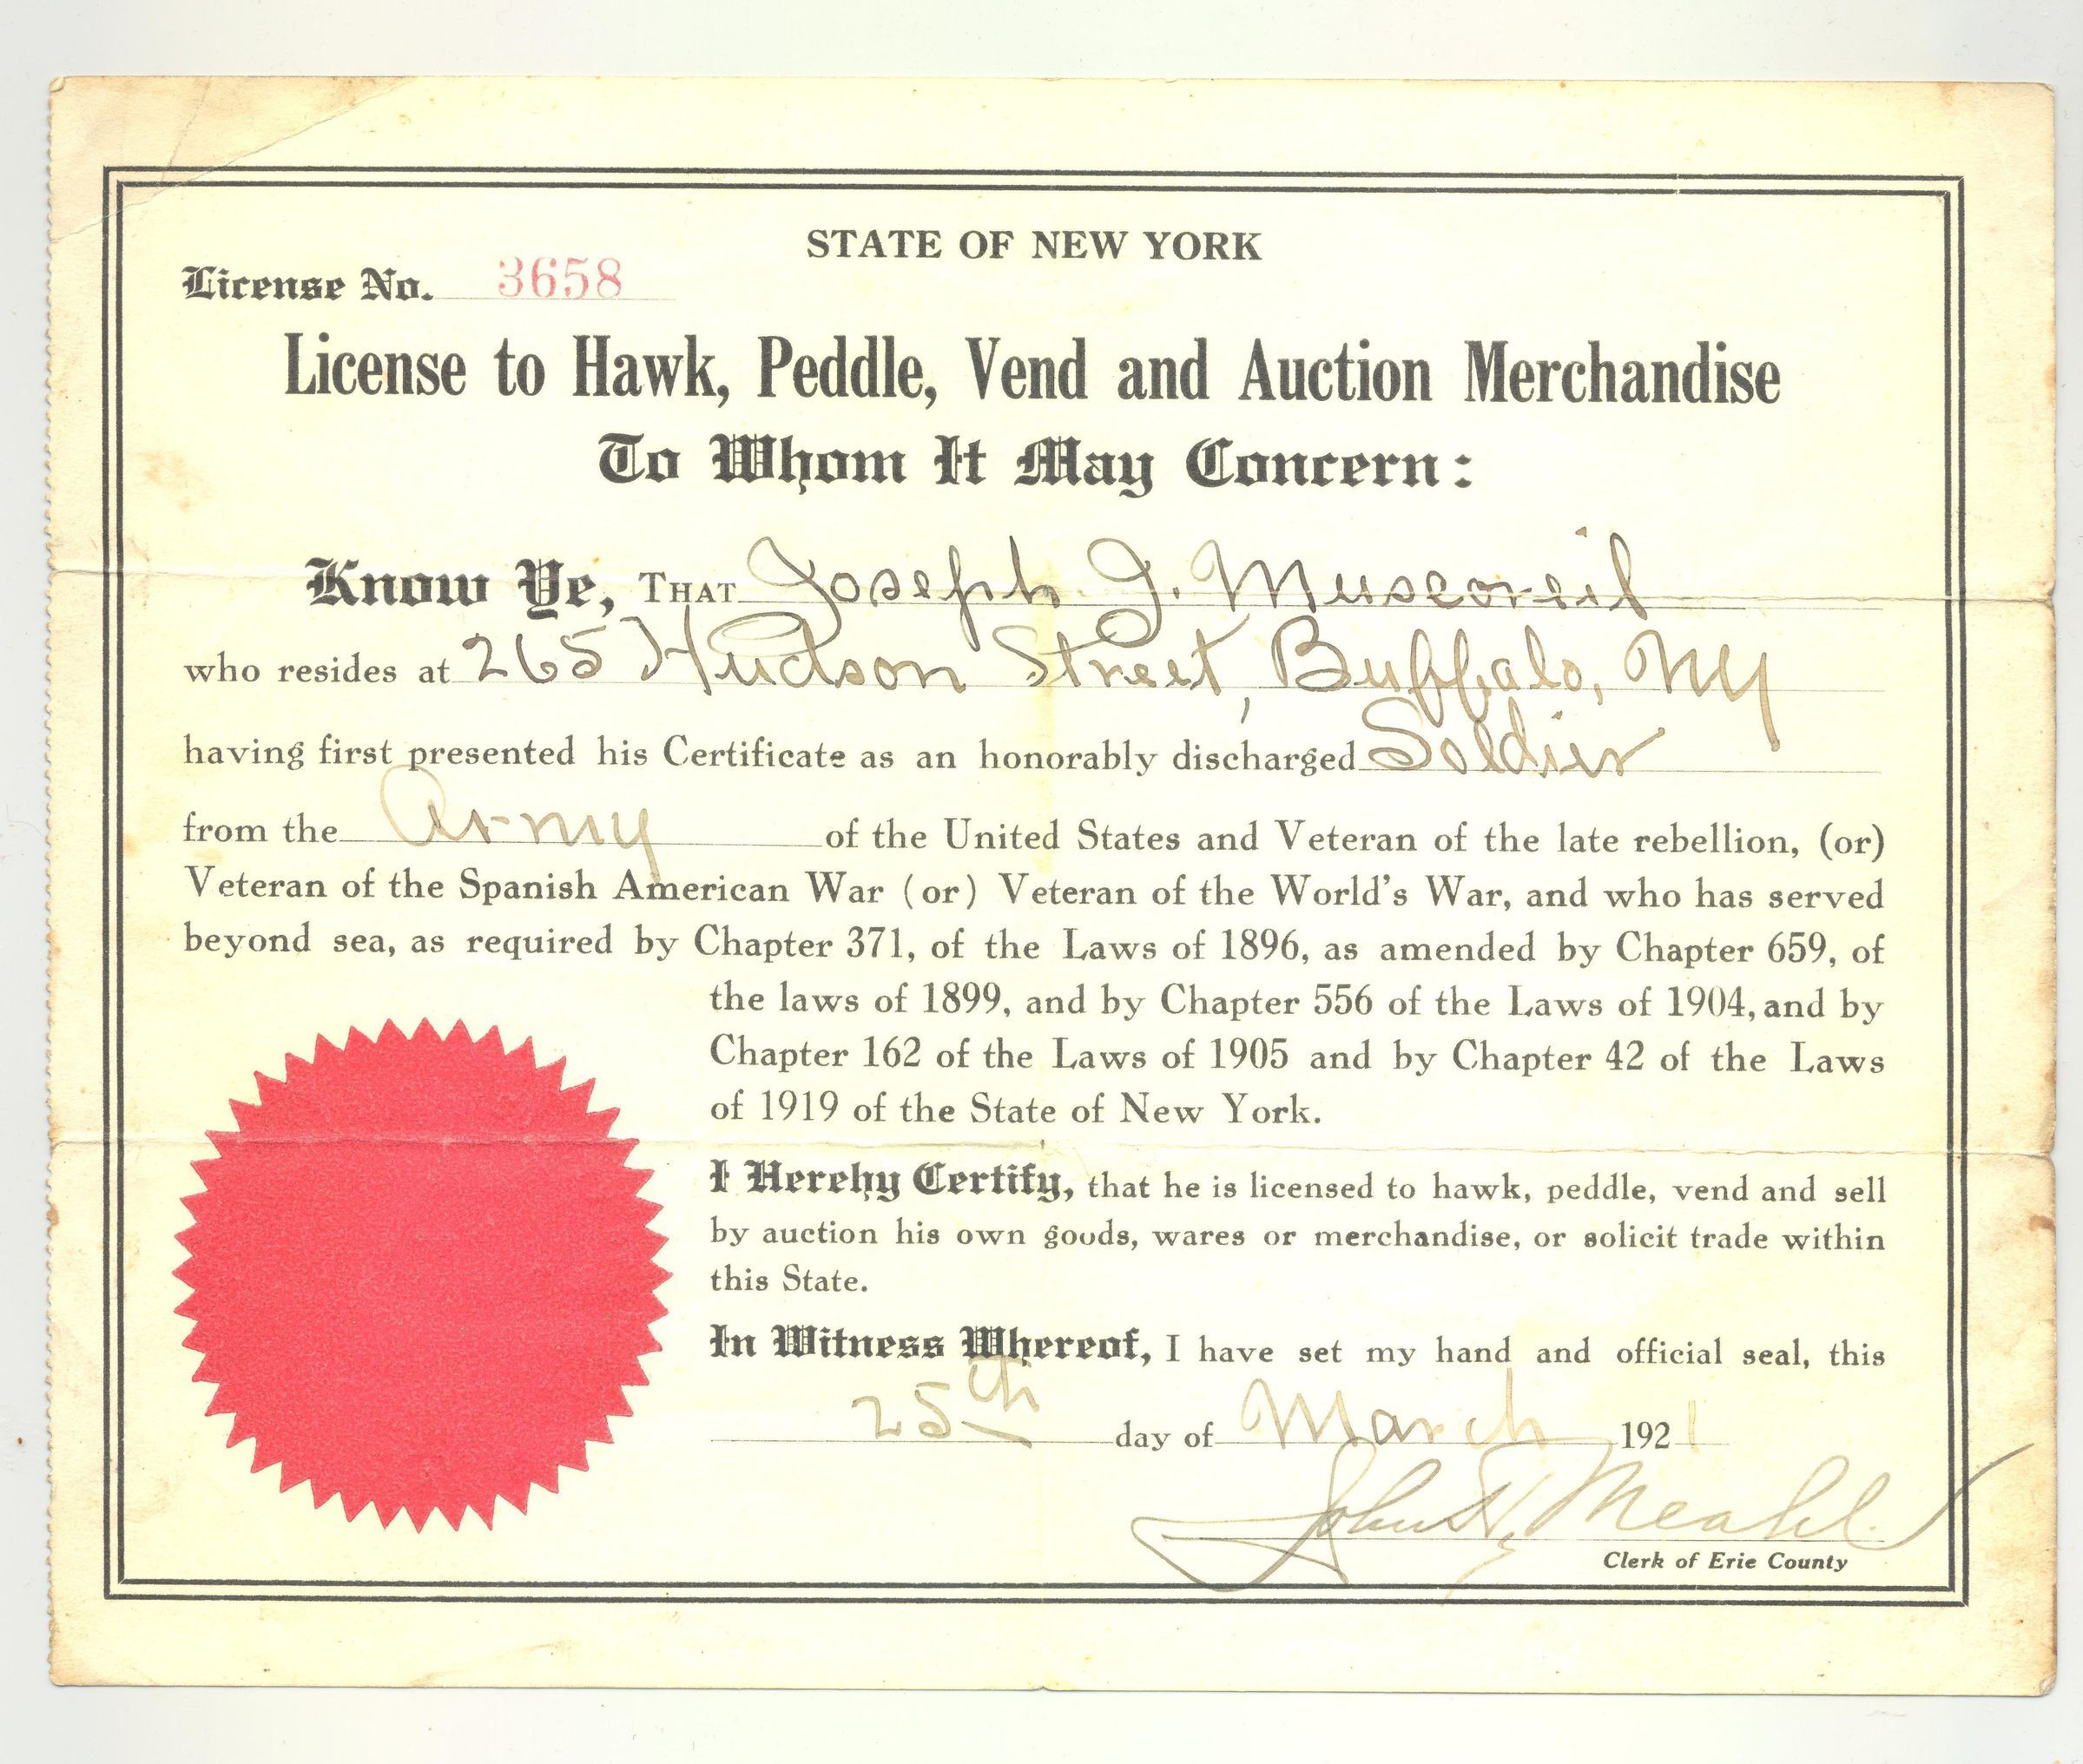 STATE OF NEW YORK
License No. 3658
License to Hawk, Peddle, Vend and Auction Merchandise
To Whom It May Concern:
Know Ye, THAT Joseph J. Muscoreil
who resides at 265 Hudson Street, Buffalo, NY
having first presented his Certificate as an honorably discharged Soldier
from the Army of the United States and Veteran of the late rebellion, (or)
Veteran of the Spanish American War (or) Veteran of the World's War, and who has served
beyond sea, as required by Chapter 371, of the Laws of 1896, as amended by Chapter 659, of
the laws of 1899, and by Chapter 556 of the Laws of 1904, and by
Chapter 162 of the Laws of 1905 and by Chapter 42 of the Laws
of 1919 of the State of New York.
I Hereby Certify, that he is licensed to hawk, peddle, vend and sell
by auction his own goods, wares or merchandise, or solicit trade within
this State.
In Witness Whereof, I have set my hand and official seal, this
25th day of March 1921
John H. Meahl
Clerk of Erie County